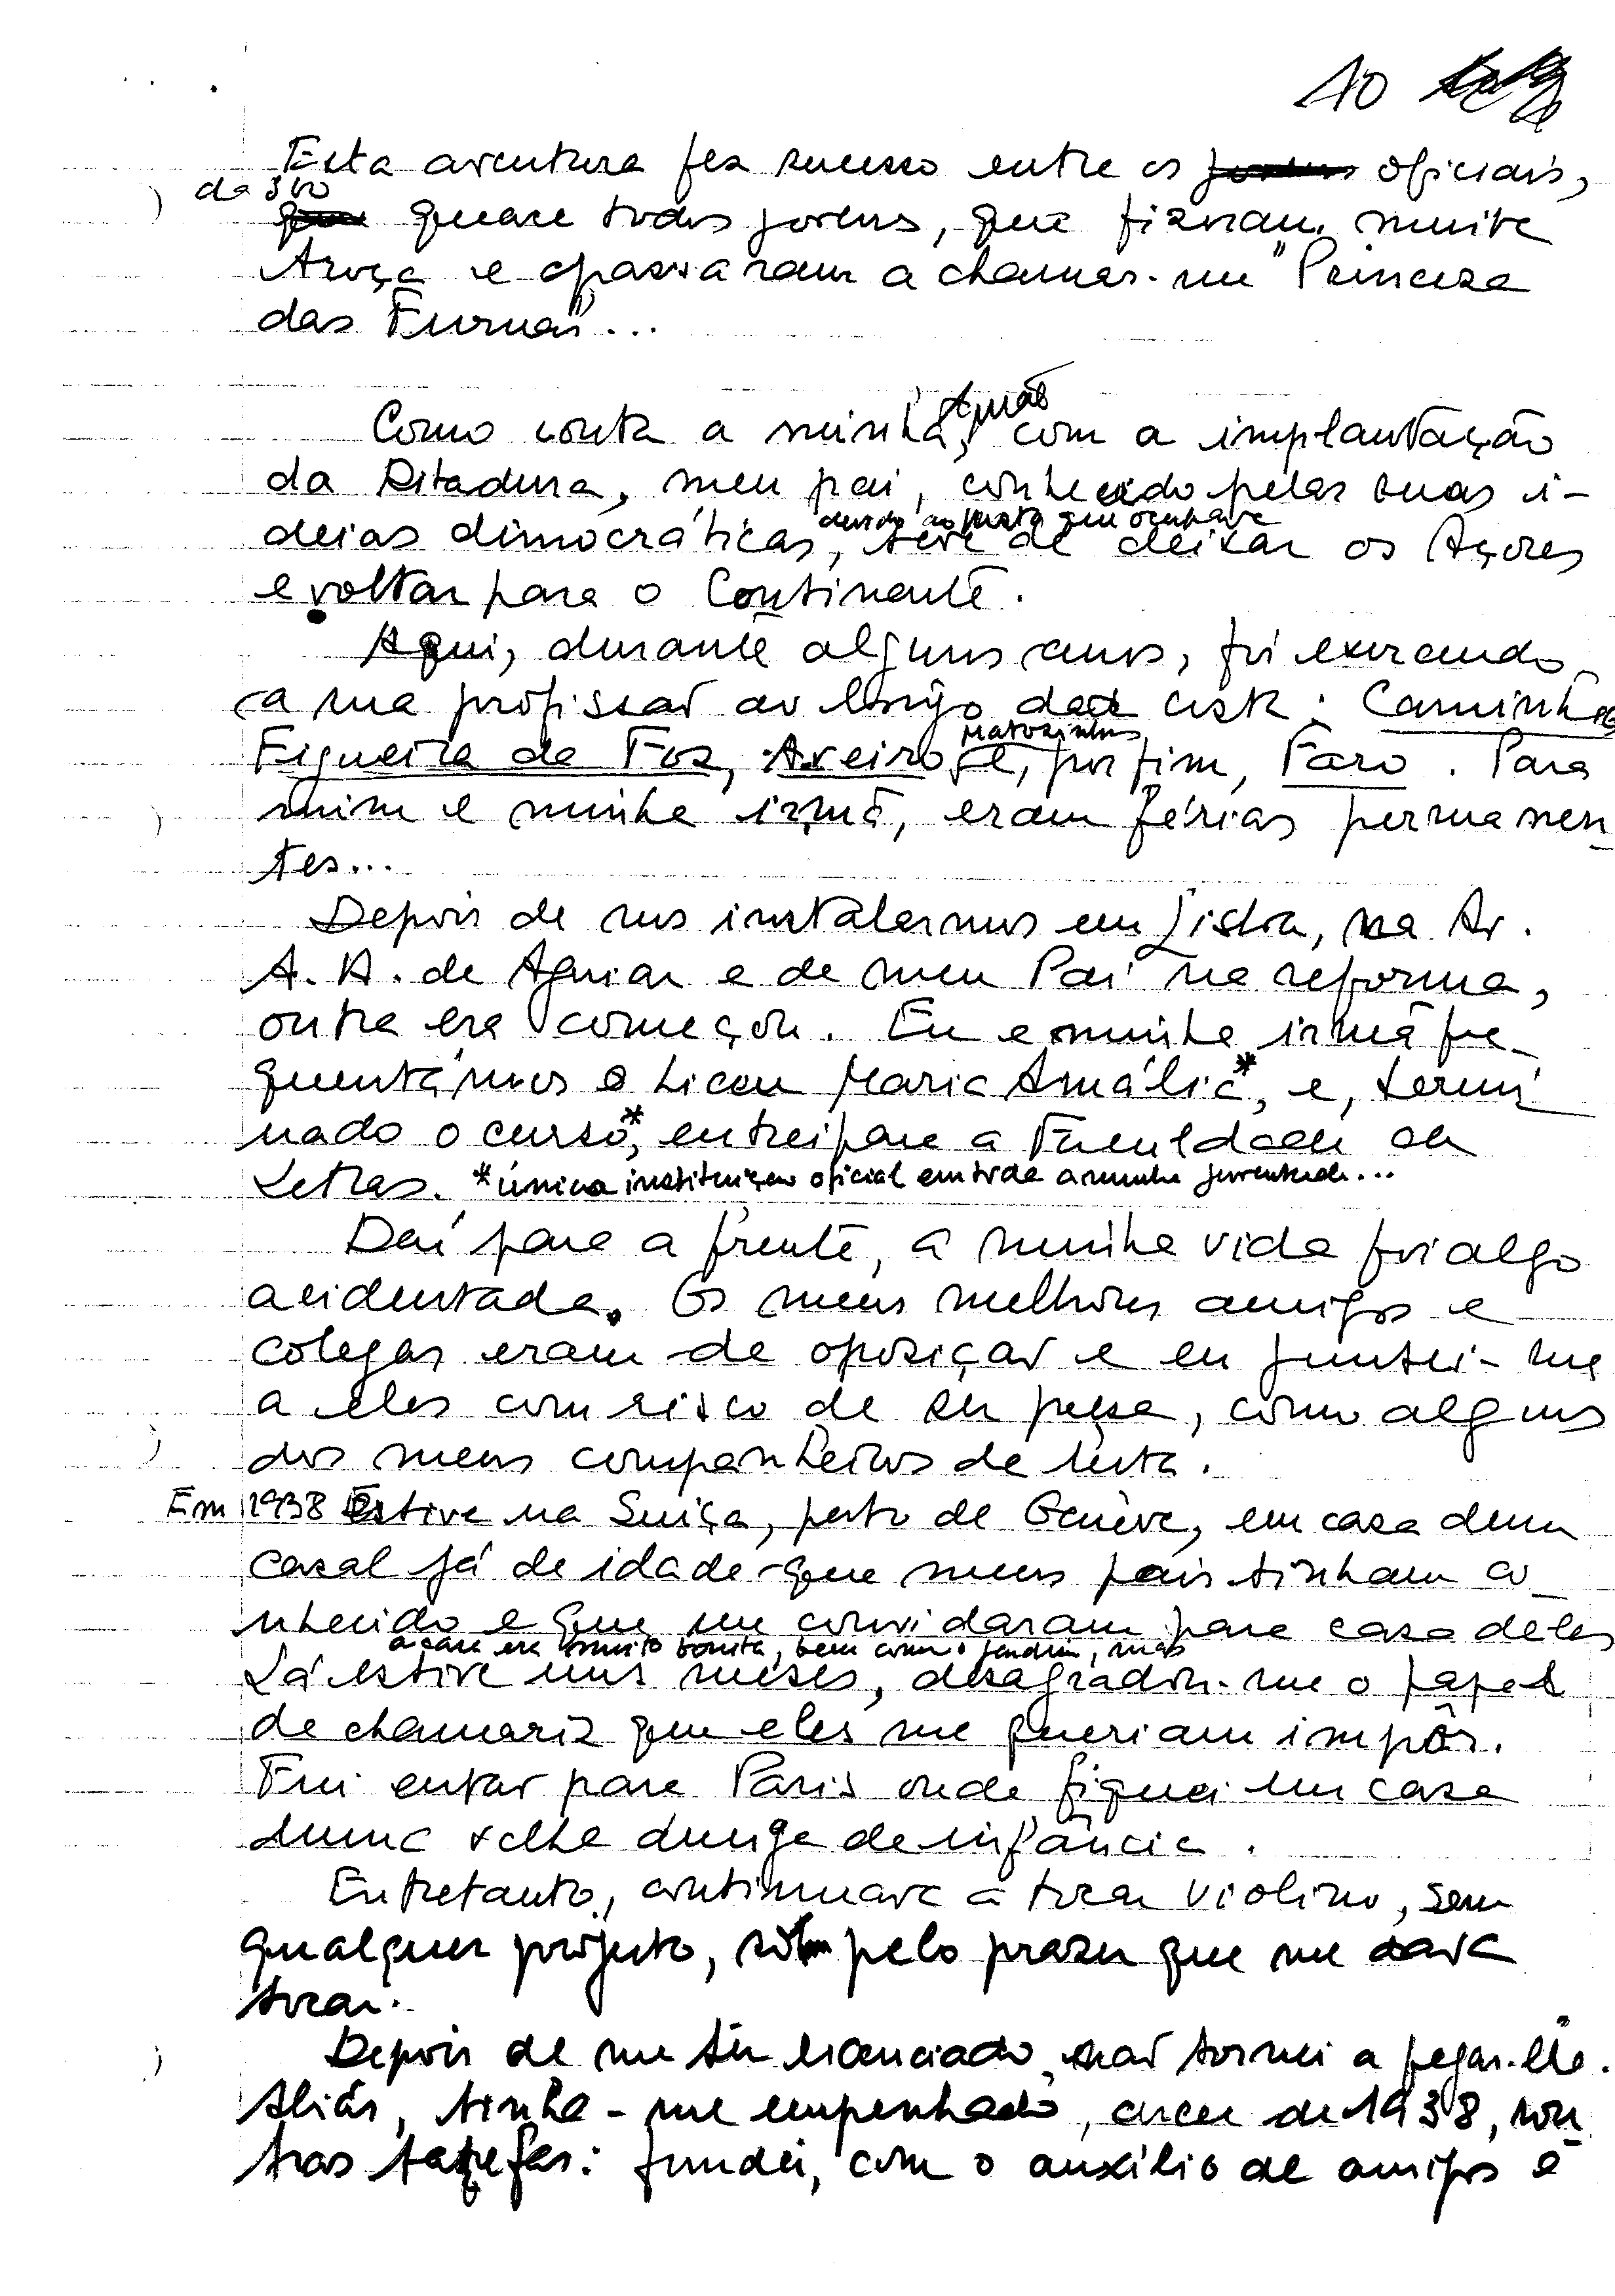 10
Esta aventura fez sucesso entre os oficiais,
quase todos jovens, que fizeram muita
troça e passaram a chamar-me "Princesa
das Furnas"...
Como conta a minha irmã, com a implantação
da Ditadura, meu pai, conhecido pelas suas i-
deias democráticas, devido ao posto que ocupava
teve de deixar os Açores
e voltar para o Continente.
Aqui, durante alguns anos, foi exercendo
a sua profissão ao longo da costa: Caminha
Figueira da Foz, Aveiro, Matozinhos e, por fim, Faro. Para
mim e minha irmã, eram férias permanen
tes...
Depois de nos instalarmos em Lisboa, na Av.
A. A. de Aguiar e de meu Pai na reforma,
outra era começou. Eu e minha irmã fre-
quentámos o Liceu Maria Amália*, e, termi
nado o curso*, entrei para a Faculdade de
Letras. *única instituição oficial em toda a minha juventude...
Daí para a frente, a minha vida foi algo
acidentada. Os meus melhores amigos e
colegas eram de oposição e eu juntei-me
a eles com risco de ser presa, como alguns
dos meus companheiros de luta.
Em 1938 Estive na Suiça, perto de Genève, em casa dum
casal já de idade que meus pais tinham co-
nhecido e que me convidaram para casa deles
a casa era muito bonita, bem como o jardim, mas
Lá estive uns meses, desagradou-me o papel
de chamariz que eles me queriam impôr.
Fui então para Paris onde fiquei em casa
duma velha amiga de infância.
Entretanto, continuava a tocar violino, sem
qualquer projecto, só pelo prazer que me dava
tocar.
Depois de me ter licenciado, não tornei a pegar-lhe.
Aliás, tinha-me empenhado, cerca de 1938, nou
tras tarefas: fundei, com o auxílio de amigos e